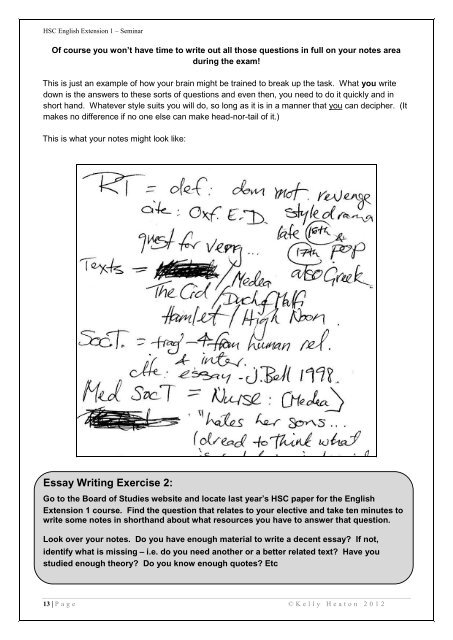 HSC English Extension 1 – Seminar
Of course you won't have time to write out all those questions in full on your notes area
during the exam!
This is just an example of how your brain might be trained to break up the task. What you write
down is the answers to these sorts of questions and even then, you need to do it quickly and in
short hand. Whatever style suits you will do, so long as it is in a manner that you can decipher. (It
makes no difference if no one else can make head-nor-tail of it.)
This is what your notes might look like:
RT = def: dom mot. revenge
cite: Oxf. E.D. style drama
quest for veng... late 16th &
17th pop
Texts = /Medea also Greek
The Cid/Duch of Malfi
Hamlet/High Noon.
SocT. = trag → from human rel.
& inter.
cite: essay - J.Bell 1998.
Med SocT = Nurse: (Medea)
"hates her sons...
I dread to think what
Essay Writing Exercise 2:
Go to the Board of Studies website and locate last year's HSC paper for the English
Extension 1 course. Find the question that relates to your elective and take ten minutes to
write some notes in shorthand about what resources you have to answer that question.
Look over your notes. Do you have enough material to write a decent essay? If not,
identify what is missing – i.e. do you need another or a better related text? Have you
studied enough theory? Do you know enough quotes? Etc
13 | Page ©Kelly Heaton 2012